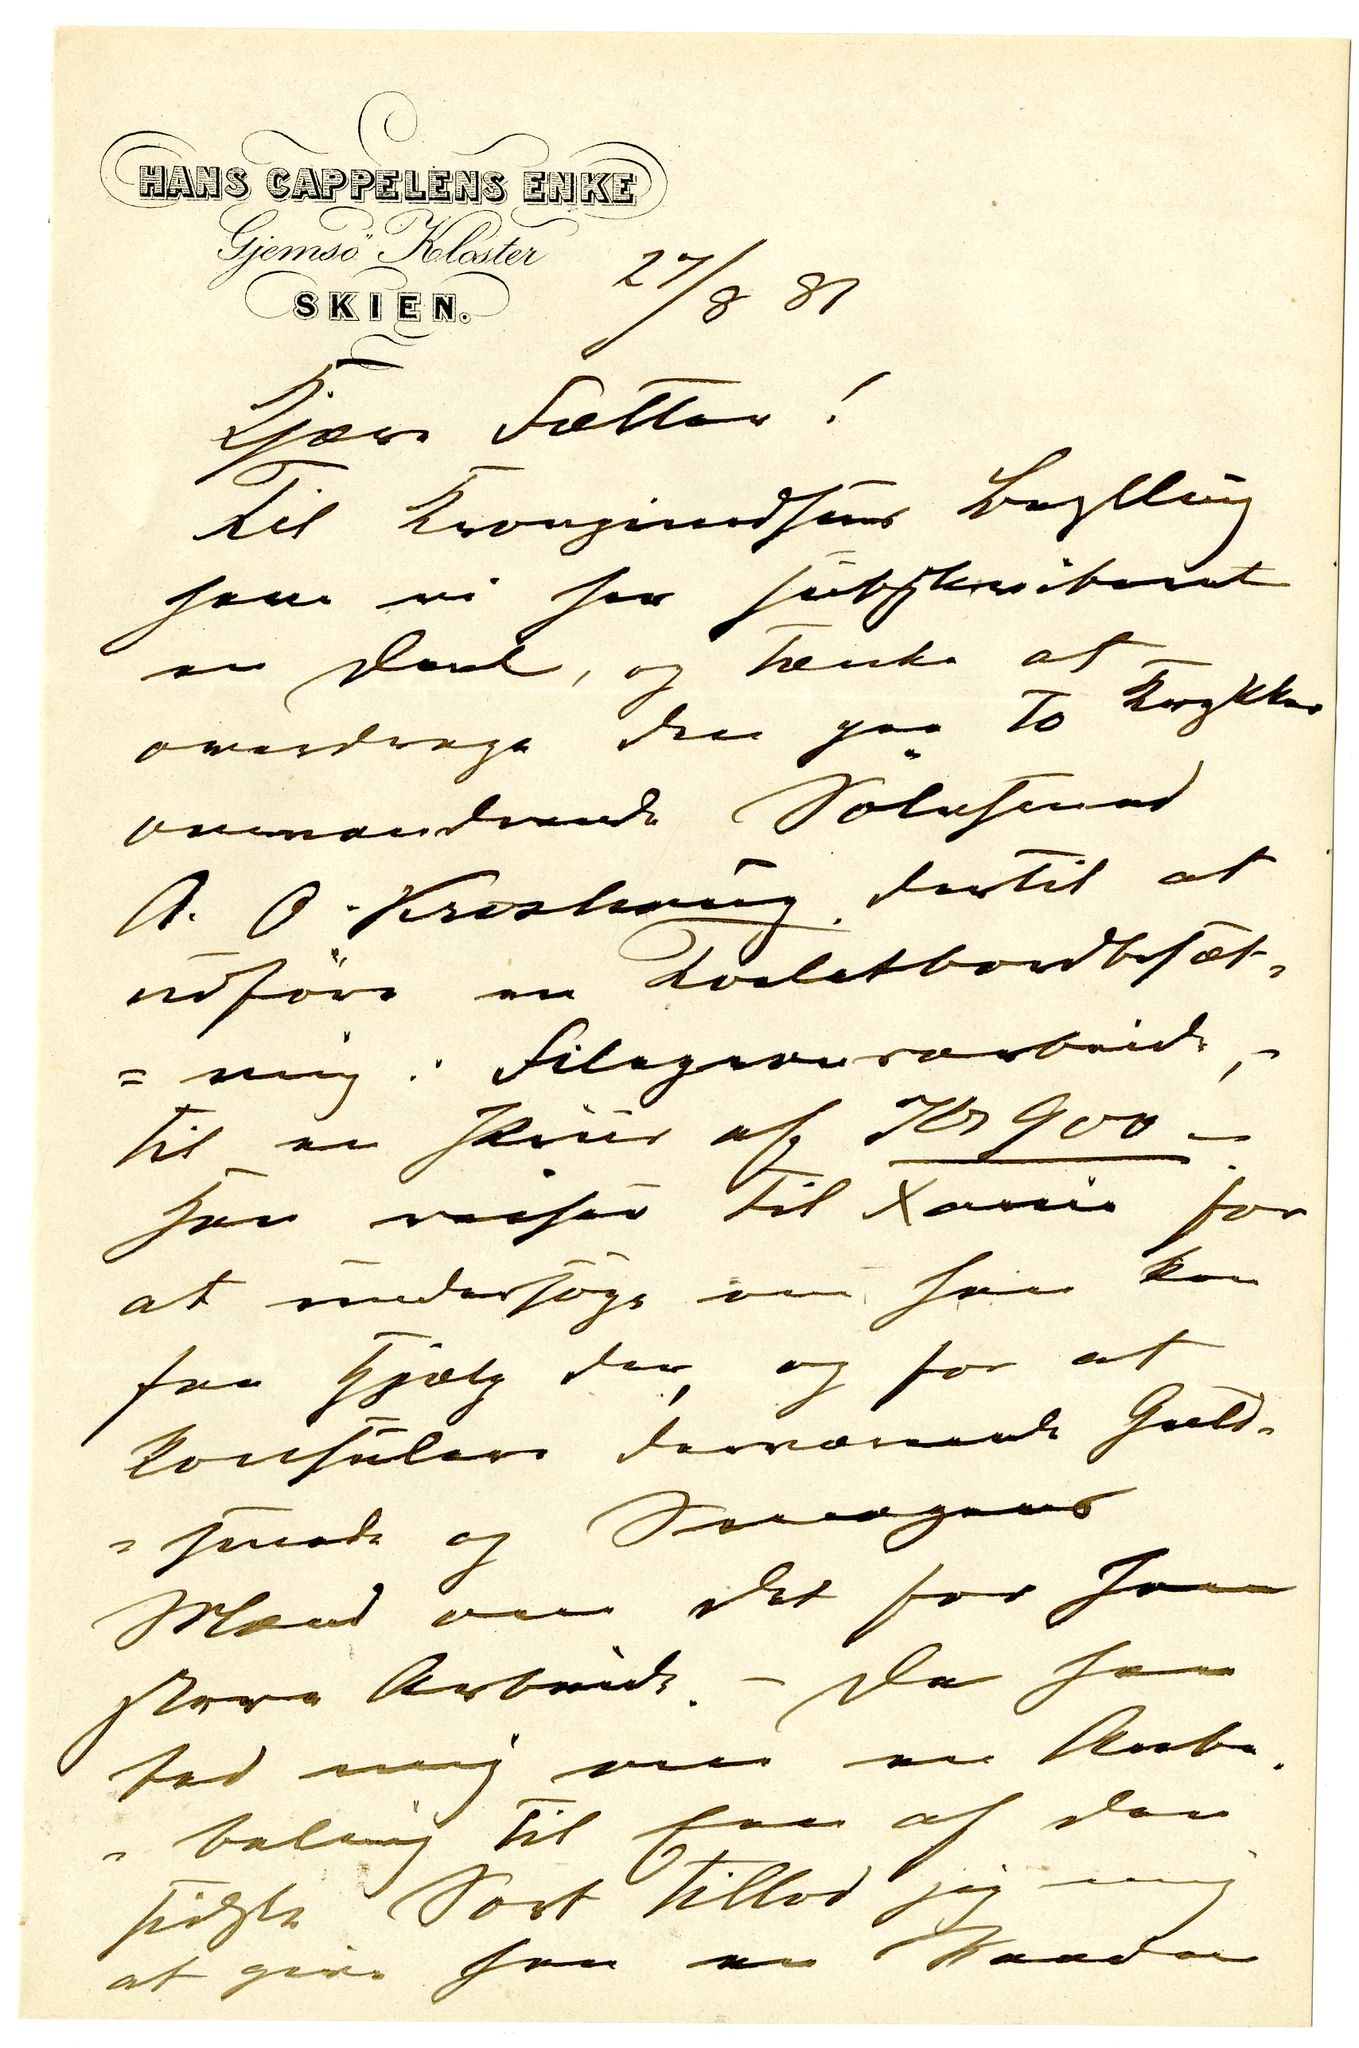 HANS CAPPELENS ENKE
Gjemsö Kloster
SKIEN.
27/8 81
Kjære Fætter!
Til Kronprindsens Bryllup
have vi her subskriberet
en Deel, og tænke at
overdrage den paa to Krykker
omvandrende Sölvsmed
A. O. dertil at
udföre en Toiletbordbesæt-
= ning i Filegransarbeide, -
til en Priis af Kr 900 -
Han reiser til Xania for
at undersöge om han kan
faa Hjælp der, og for at
konsulere derværende Guld-
= smede og Smagens
Mænd om det for ham
store Arbeide. - Da han
bad mig om en Anbe-
= faling til Een af den
sidste Sort tillod jeg mig
at give ham en